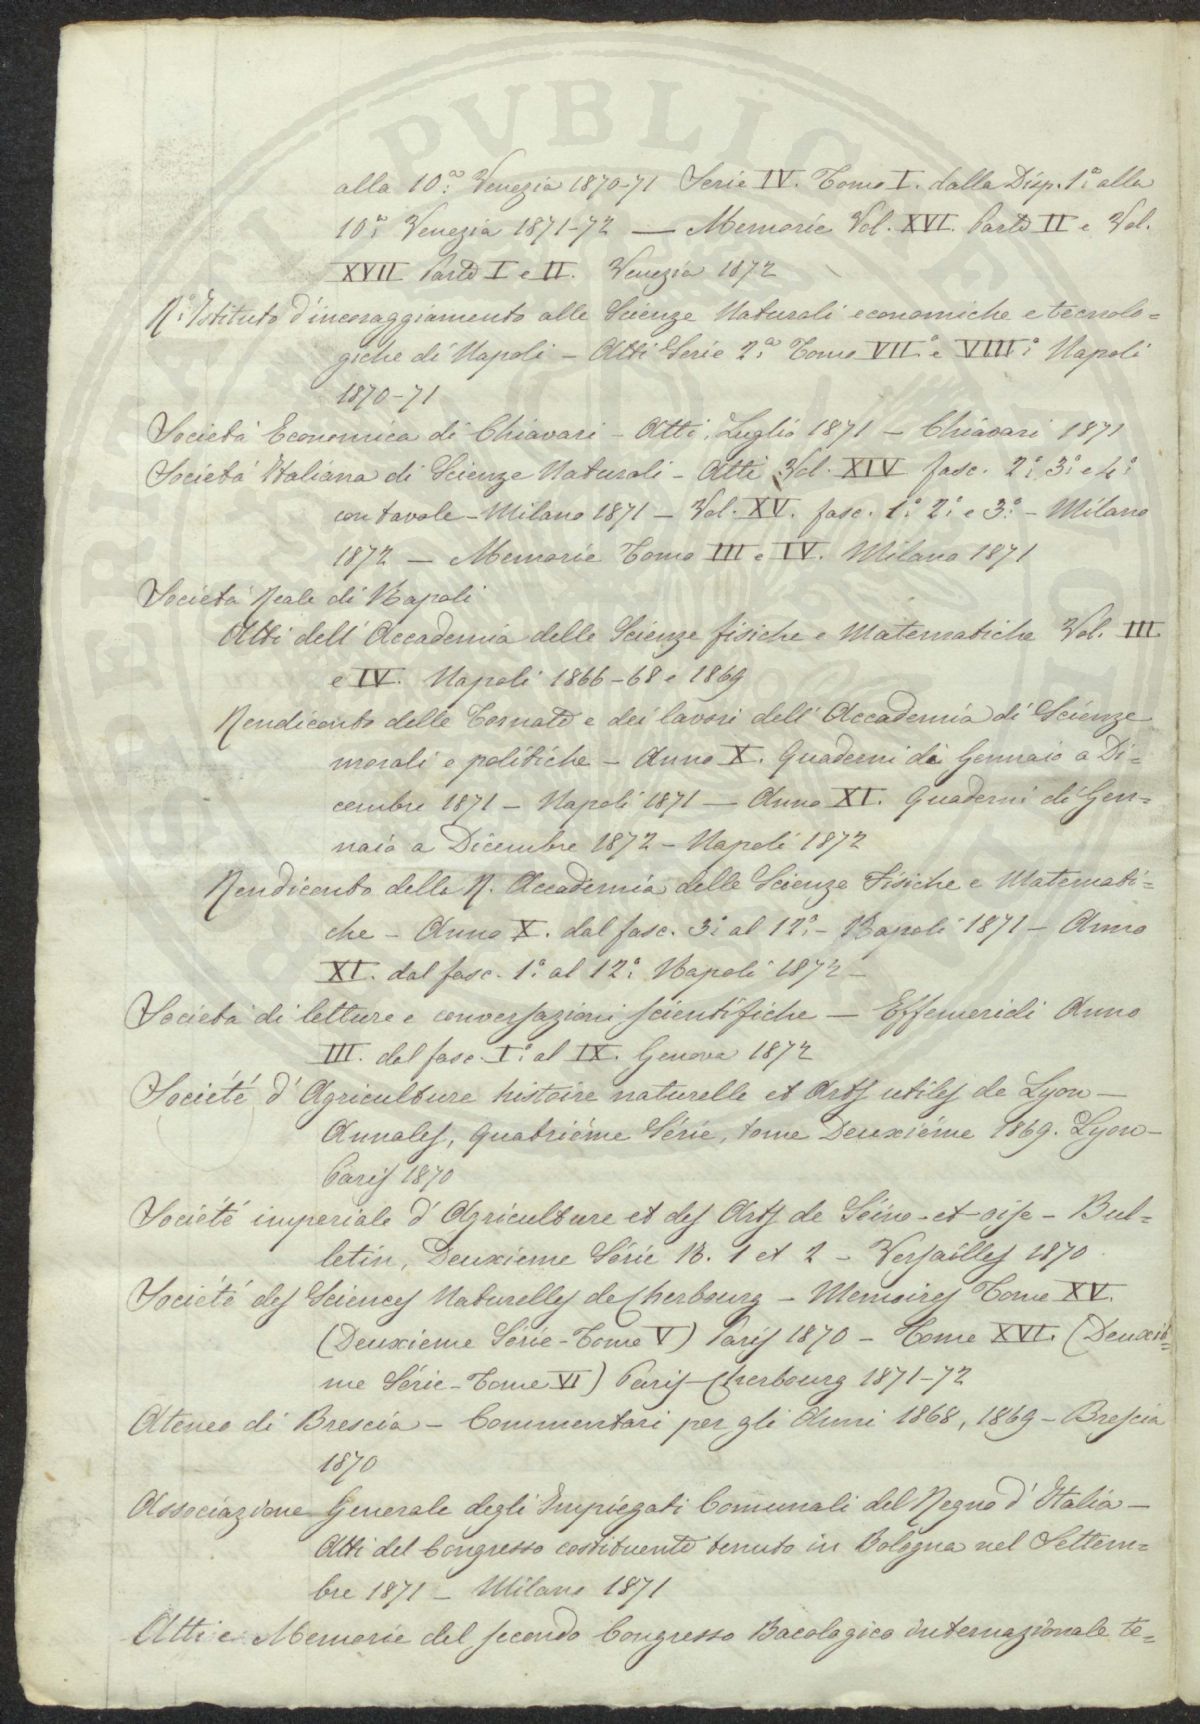 alla 10.ª Venezia 1870-71 Serie IV. Tomo I. dalla Disp. 1.ª alla
10.ª Venezia 1871-72 — Memorie Vol. XVI. Parte II e Vol.
XVII Parte I e II. Venezia 1872
R.º Istituto d'incoraggiamento alle Scienze Naturali economiche e tecnolo=
giche di Napoli - Atti Serie 2.ª Tomo VII.º e VIII.º Napoli
1870-71
Società Economica di Chiavari - Atti, Luglio 1871 - Chiavari 1871
Società Italiana di Scienze Naturali - Atti Vol. XIV fasc. 2.º 3.º e 4.º
con tavole - Milano 1871 - Vol. XV. fasc. 1.º 2.º e 3.º - Milano
1872 — Memorie Tomo III e IV. Milano 1871
Società Reale di Napoli
Atti dell'Accademia delle Scienze fisiche e Matematiche Vol. III
e IV. Napoli 1866-68 e 1869
Rendiconto delle Tornate e dei lavori dell'Accademia di Scienze
morali e politiche - Anno X. Quaderni di Gennaio a Di=
cembre 1871 - Napoli 1871 — Anno XI. Quaderni di Gen=
naio a Dicembre 1872 - Napoli 1872
Rendiconto della R. Accademia delle Scienze Fisiche e Matemati=
che - Anno X. dal fasc. 3.º al 12.º - Napoli 1871 - Anno
XI. dal fasc. 1.º al 12.º Napoli 1872 -
Società di letture e conversazioni scientifiche — Effemeridi Anno
III. dal fasc. I.º al IX. Genova 1872
Société d'Agriculture histoire naturelle et Arts utiles de Lyon —
Annales, Quatriéme Série, tome Deuxiéme 1869. Lyon-
Paris 1870
Société imperiale d'Agriculture et des Arts de Seine-et-oise - Bul=
letin, Deuxieme Série N. 1 et 2 - Versailles 1870
Société des Sciences Naturelles de Cherbourg - Memoires Tome XV.
(Deuxieme Série - Tome V) Paris 1870 - Tome XVI. (Deuxié=
me Série - Tome VI) Paris-Cherbourg 1871-72
Ateneo di Brescia - Commentari per gli Anni 1868, 1869 - Brescia
1870
Associazione Generale degli Impiegati Comunali del Regno d'Italia —
Atti del Congresso costituente tenuto in Bologna nel Settem=
bre 1871 - Milano 1871
Atti e Memorie del secondo Congresso Bacologico internazionale te=